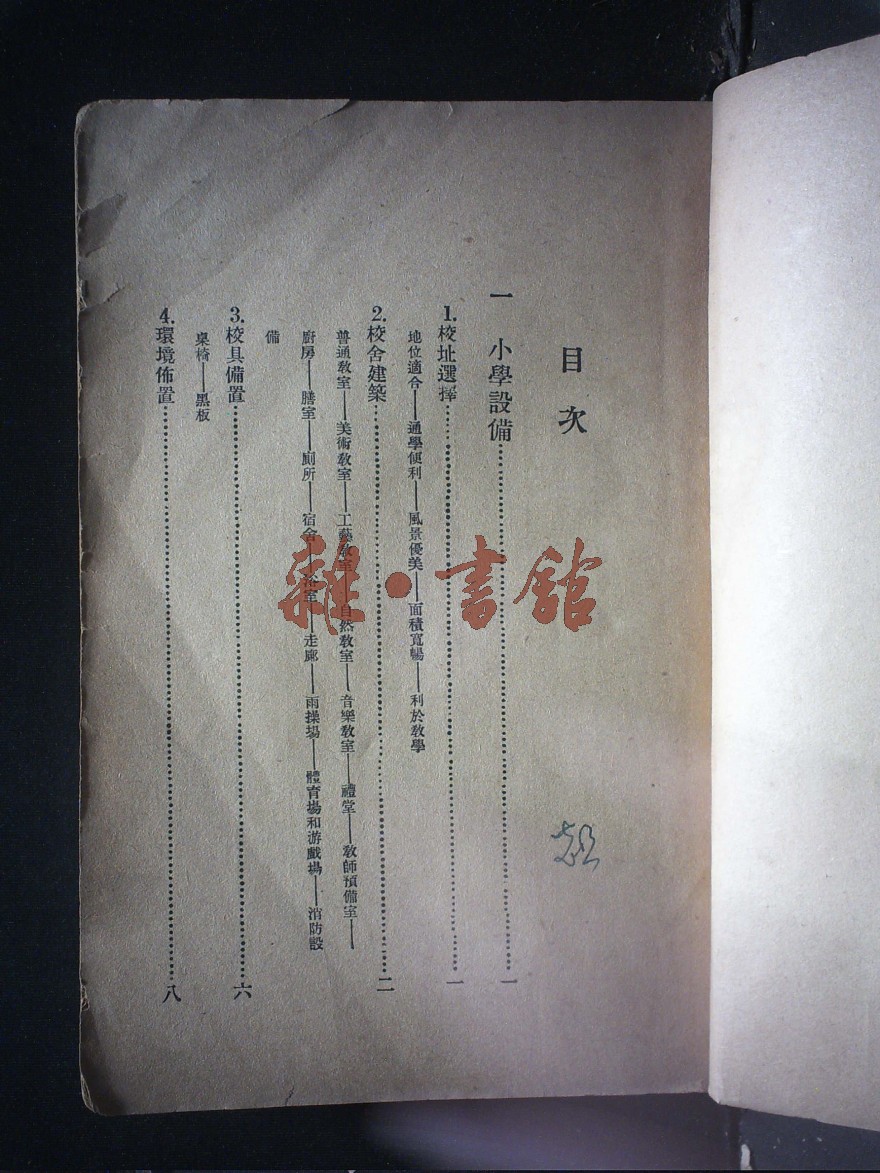 目次
一 小學設備……一
1. 校址選擇……一
地位適合——通學便利——風景優美——面積寬暢——利於教學
2. 校舍建築……二
普通教室——美術教室——工藝教室——自然教室——音樂教室——禮堂——教師預備室——
廚房——膳室——廁所——宿舍——浴室——走廊——雨操場——體育場和游戲場——消防設
備
3. 校具備置……六
桌椅——黑板
4. 環境佈置……八
雜·書館